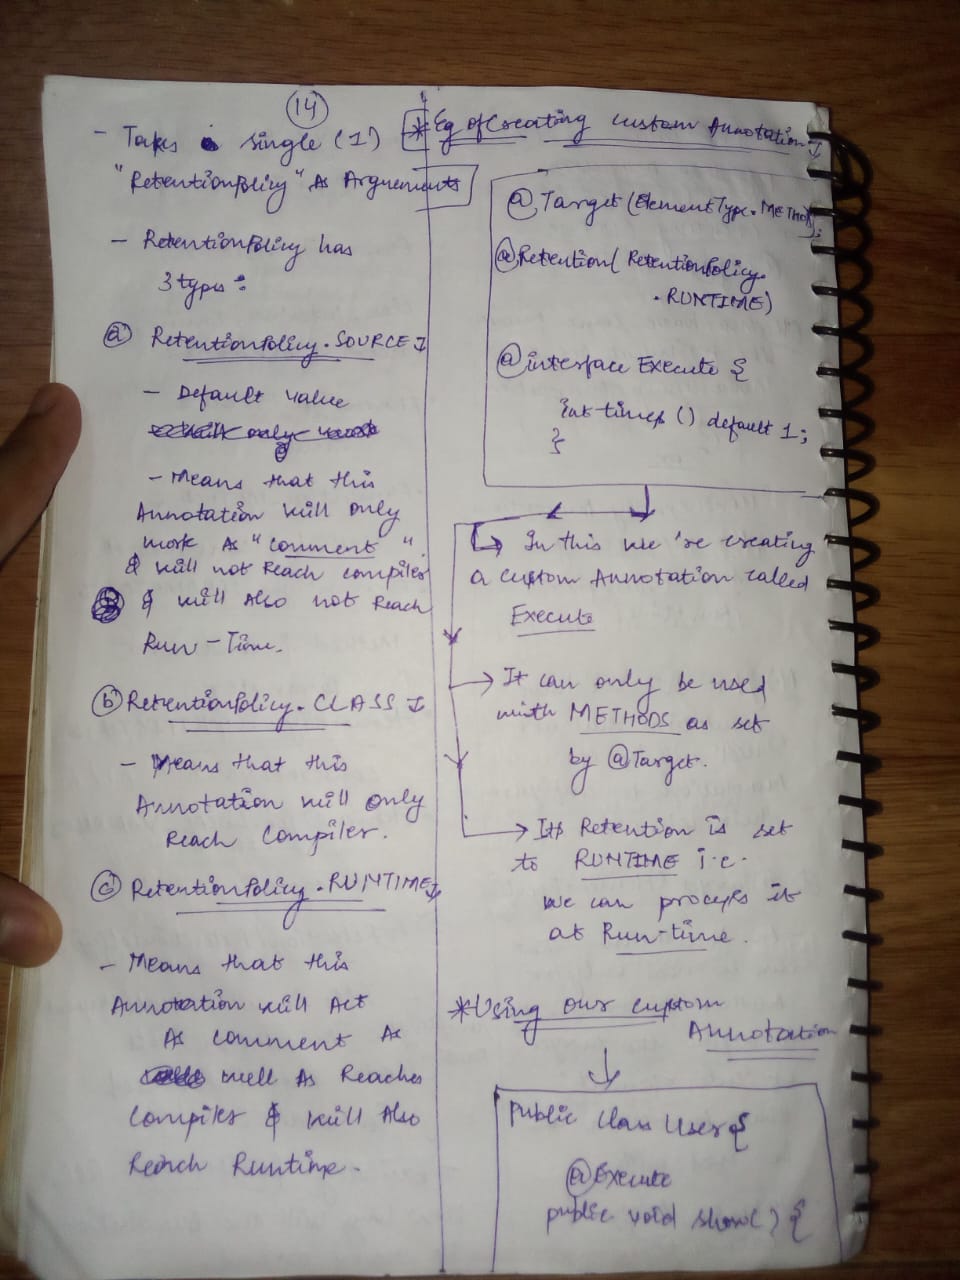 14
- Takes single (1)
"RetentionPolicy" As Arguements
- RetentionPolicy has
3 types :
(a) RetentionPolicy.SOURCE
- Default value
- Means that this
Annotation will only
work as "comment".
& will not reach compiler
& will Also not Reach
Run-Time.
(b) RetentionPolicy.CLASS
- Means that this
Annotation will only
Reach Compiler.
(c) RetentionPolicy.RUNTIME
- Means that this
Annotation will Act
As comment As
well As Reaches
Compiler & will Also
Reach Runtime.
* Eg of Creating custom Annotation
@Target(ElementType.METHOD);
@Retention(RetentionPolicy.
.RUNTIME)
@interface Execute {
int times () default 1;
}
In this we're creating
a custom Annotation called
Execute
→ It can only be used
with METHODS as set
by @Target.
→ Its Retention is set
to RUNTIME i.e.
we can process it
at Run-time.
*Using our custom
Annotation
public class User {
@Execute
public void show() {